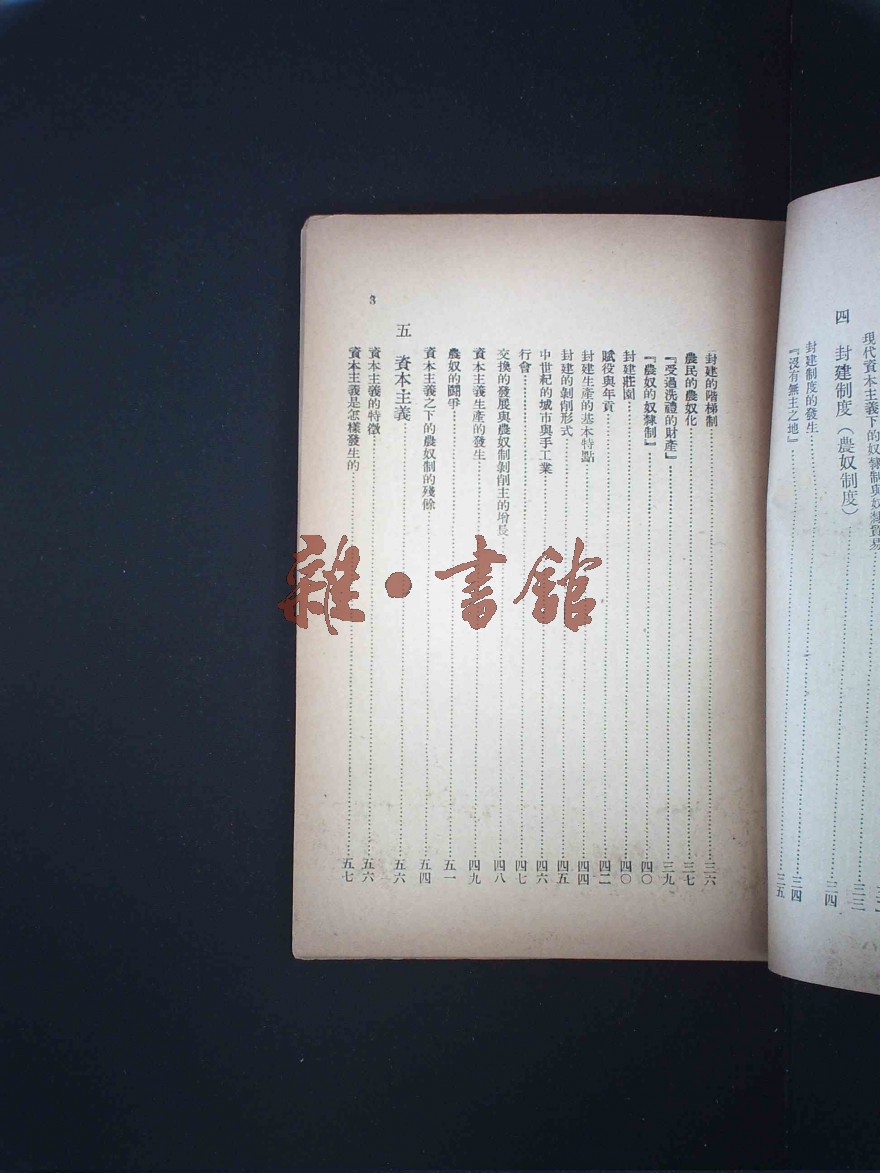 現代資本主義下的奴隸制與奴隸貿易……三三
四 封建制度（農奴制度）……三四
封建制度的發生……三四
『沒有無主之地』……三五
封建的階梯制……三六
農民的農奴化……三七
『受過洗禮的財產』……三九
『農奴的奴隸制』……四〇
封建莊園……四〇
賦役與年貢……四二
封建生產的基本特點……四四
封建的剝削形式……四五
中世紀的城市與手工業……四六
行會……四七
交換的發展與農奴制剝削主的增長……四八
資本主義生產的發生……四九
農奴的鬪爭……五一
資本主義之下的農奴制的殘餘……五四
五 資本主義……五六
資本主義的特徵……五六
資本主義是怎樣發生的……五七
3
雜·書館